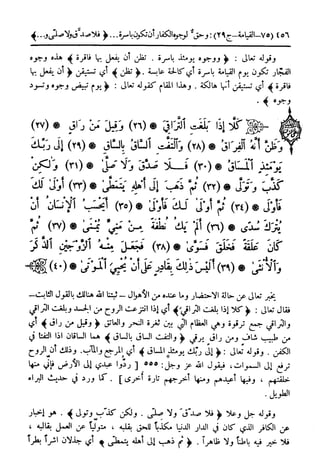 (٤٥٦) (٧٥- القيامة - ج ٢٩): وحق لوجوه الكفار أن تكون باسرة... ﴿ فلا صدق ولا صلى و...﴾
وقوله تعالى : ﴿ ووجوه يومئذ باسرة . تظن أن يفعل بها فاقرة ﴾ هذه وجوه
الفجار تكون يوم القيامة باسرة أي كالحة عابسة . ﴿ تظن ﴾ أي تستيقن ﴿ أن يفعل بها
فاقرة ﴾ أي تستيقن أنها هالكة . وهذا المقام كقوله تعالى : ﴿ يوم تبيض وجوه وتسود
وجوه ﴾ .
كَلَّا إِذَا بَلَغَتِ التَّرَاقِيَ * (٢٦) وَقِيلَ مَنْ رَاقٍ * (٢٧)
وَظَنَّ أَنَّهُ الْفِرَاقُ * (٢٨) وَالْتَفَّتِ السَّاقُ بِالسَّاقِ * (٢٩) إِلَى رَبِّكَ
يَوْمَئِذٍ الْمَسَاقُ * (٣٠) فَلَا صَدَّقَ وَلَا صَلَّى * (٣١) وَلَكِنْ
كَذَّبَ وَتَوَلَّى * (٣٢) ثُمَّ ذَهَبَ إِلَى أَهْلِهِ يَتَمَطَّى * (٣٣) أَوْلَى لَكَ
فَأَوْلَى * (٣٤) ثُمَّ أَوْلَى لَكَ فَأَوْلَى * (٣٥) أَيَحْسَبُ الْإِنْسَانُ أَنْ
يُتْرَكَ سُدًى * (٣٦) أَلَمْ يَكُ نُطْفَةً مِنْ مَنِيٍّ يُمْنَى * (٣٧) ثُمَّ
كَانَ عَلَقَةً فَخَلَقَ فَسَوَّى * (٣٨) فَجَعَلَ مِنْهُ الزَّوْجَيْنِ الذَّكَرَ
وَالْأُنْثَى * (٣٩) أَلَيْسَ ذَلِكَ بِقَادِرٍ عَلَى أَنْ يُحْيِيَ الْمَوْتَى * (٤٠)
يخبر تعالى عن حالة الاحتضار وما عنده من الأهوال - ثبتنا الله هنالك بالقول الثابت -
فقال تعالى : ﴿ كلا إذا بلغت التراقي ﴾ أي إذا انتزعت الروح من الجسد وبلغت التراقي
والتراقي جمع ترقوة وهي العظام التي بين ثغرة النحر والعاتق ﴿ وقيل من راق ﴾ أي
من طبيب شاف ومن راق يرقي ﴿ والتفت الساق بالساق ﴾ هما الساقان اذا التفتا في
الكفن . وقوله تعالى : ﴿ إلى ربك يومئذ المساق ﴾ أي المرجع والمآب. وذلك أن الروح
ترفع إلى السموات، فيقول الله عز وجل: ٥٥٥ [ ردوا عبدي إلى الأرض فإني منها
خلقتهم ، وفيها أعيدهم ومنها أخرجهم تارة أخرى ] . كما ورد في حديث البراء
الطويل .
وقوله جل وعلا ﴿ فلا صدق ولا صلى . ولكن كذب وتولى ﴾ . هو إخبار
عن الكافر الذي كان في الدار الدنيا مكذباً للحق بقلبه ، متولياً عن العمل بقالبه ،
فلا خير فيه باطناً ولا ظاهراً . ﴿ ثم ذهب إلى أهله يتمطى ﴾ أي جذلان اشراً بطراً